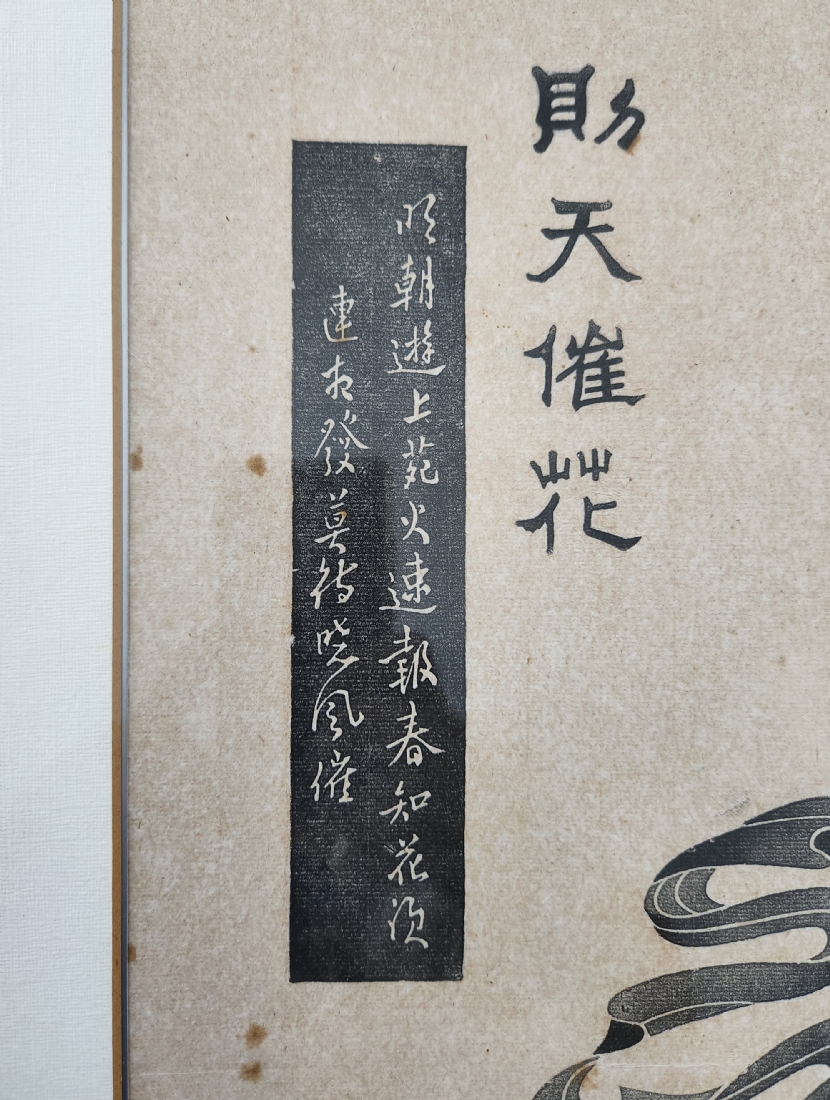 則天催花
明朝遊上苑火速報春知花須
連夜發莫待曉風催